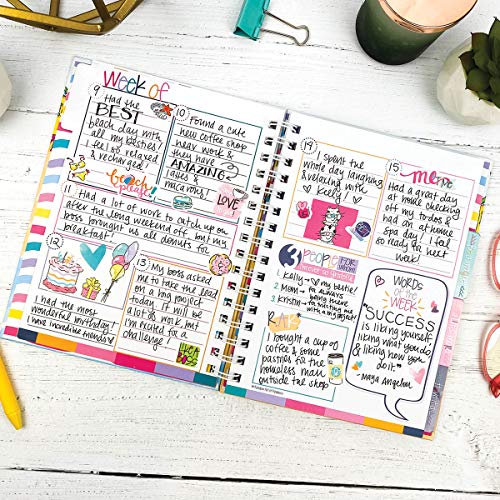 Week of
9 Had the
BEST
beach day with
all my besties!
I feel so relaxed
& recharged!
beach
please!
10 Found a cute
new coffee shop
near work &
they have
AMAZING
macarons!
LOVE
11 Had a lot of work to catch up on
after the long weekend off, but my
boss brought us all donuts for
breakfast!
12
I had the most
wonderful birthday!
I have incredible friends!
13 My boss asked
me to take the lead
on a big project
today. It will be
a lot of work, but
I'm excited for a
challenge!
14 I spent the
whole day laughing
& relaxing with
Kelly
15 me
Had a great day
at home checking
off my to-dos &
had an at home
Spa day! I feel
so ready for next
week!
3 PEOPLE FOR
WHOM
1. Kelly → my bestie!
2. Mom → for always
being there
3. Kristin → for helping me
with a big project!
I bought a cup of
coffee & some
pastries for the
homeless man
outside the shop
WORDS
of the
WEEK
"SUCCESS
is liking yourself,
liking what you do
& liking how you
do it."
- Maya Angelou